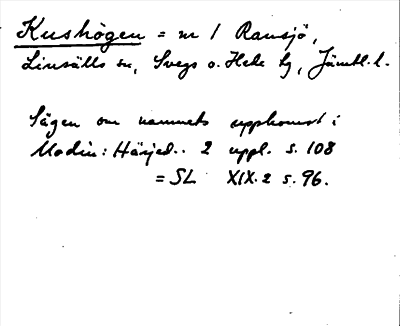 Kushögen = nr 1 Ransjö,
Linsälls sn, Svegs o. Hede tg, Jämtl. l.
Sägen om namnets uppkomst i
Modin: Härjed.. 2 uppl. s. 108
= SL XIX.2 s. 96.